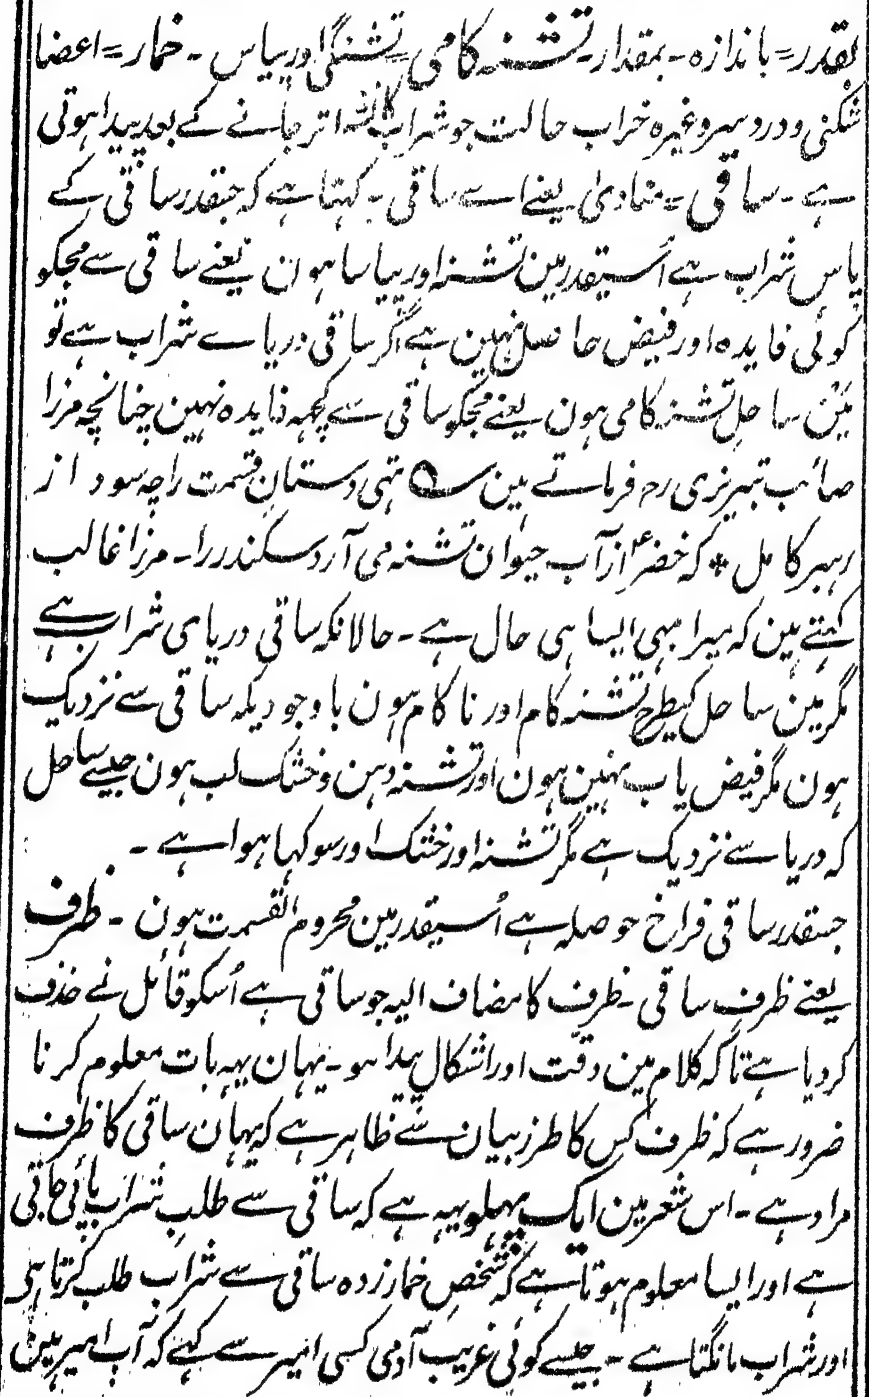 بقدر = باندازہ ۔ بمقدار ۔ تشنہ کامی = تشنگی اور پیاس ۔ خمار = اعضا
شکنی و دردسر وغیرہ خراب حالت جو شراب کا نشہ اتر جانے کے بعد پیدا ہوتی
ہے ۔ ساقی = منادیٰ یعنے اے ساقی ۔ کہتا ہے کہ جسقدر ساقی کے
پاس شراب ہے اُسیقدر مین تشنہ اور پیاسا ہون یعنے ساقی سے مجکو
کوئی فایدہ اور فیض حاصل نہین ہے اگر ساقی دریاے شراب ہے تو
مین ساحلِ تشنہ کامی ہون یعنے مجکو ساقی سے کچہہ فایدہ نہین چنانچہ مرزا
صائب تبریزی رح فرماتے ہین ؎ تہی دستانِ قسمت راچہ سود از
رہبر کامل * کہ خضرؑ از آب حیوان تشنہ می آرد سکندر را ۔ مرزا غالب
کہتے ہین کہ میرا بہی ایسا ہی حال ہے ۔ حالانکہ ساقی دریای شراب ہے
مگر مین ساحل کیطرح تشنہ کام اور ناکام ہون باوجودیکہ ساقی سے نزدیک
ہون مگر فیض یاب نہین ہون اور تشنہ دہن و خشک لب ہون جیسے ساحل
کہ دریا سے نزدیک ہے مگر تشنہ اور خشک اور سوکہا ہوا ہے ۔
جسقدر ساقی فراخ حوصلہ ہے اُسیقدر مین محروم القسمت ہون ۔ ظرف
یعنے ظرف ساقی ۔ ظرف کا مضاف الیہ جو ساقی ہے اُسکو قائل نے حذف
کردیا ہے تاکہ کلام مین دقّت اور اشکال پیدا ہو ۔ یہان یہہ بات معلوم کرنا
ضرور ہے کہ ظرف کس کا طرز بیان سے ظاہر ہے کہ یہان ساقی کا ظرف
مراد ہے ۔ اس شعر مین ایک پہلو یہہ ہے کہ ساقی سے طلبِ شراب پائی جاتی
ہے اور ایسا معلوم ہوتا ہے کہ شخصِ خمار زدہ ساقی سے شراب طلب کرتا ہے
اور شراب مانگتا ہے ۔ جیسے کوئی غریب آدمی کسی امیر سے کہے کہ آپ امیر ہین